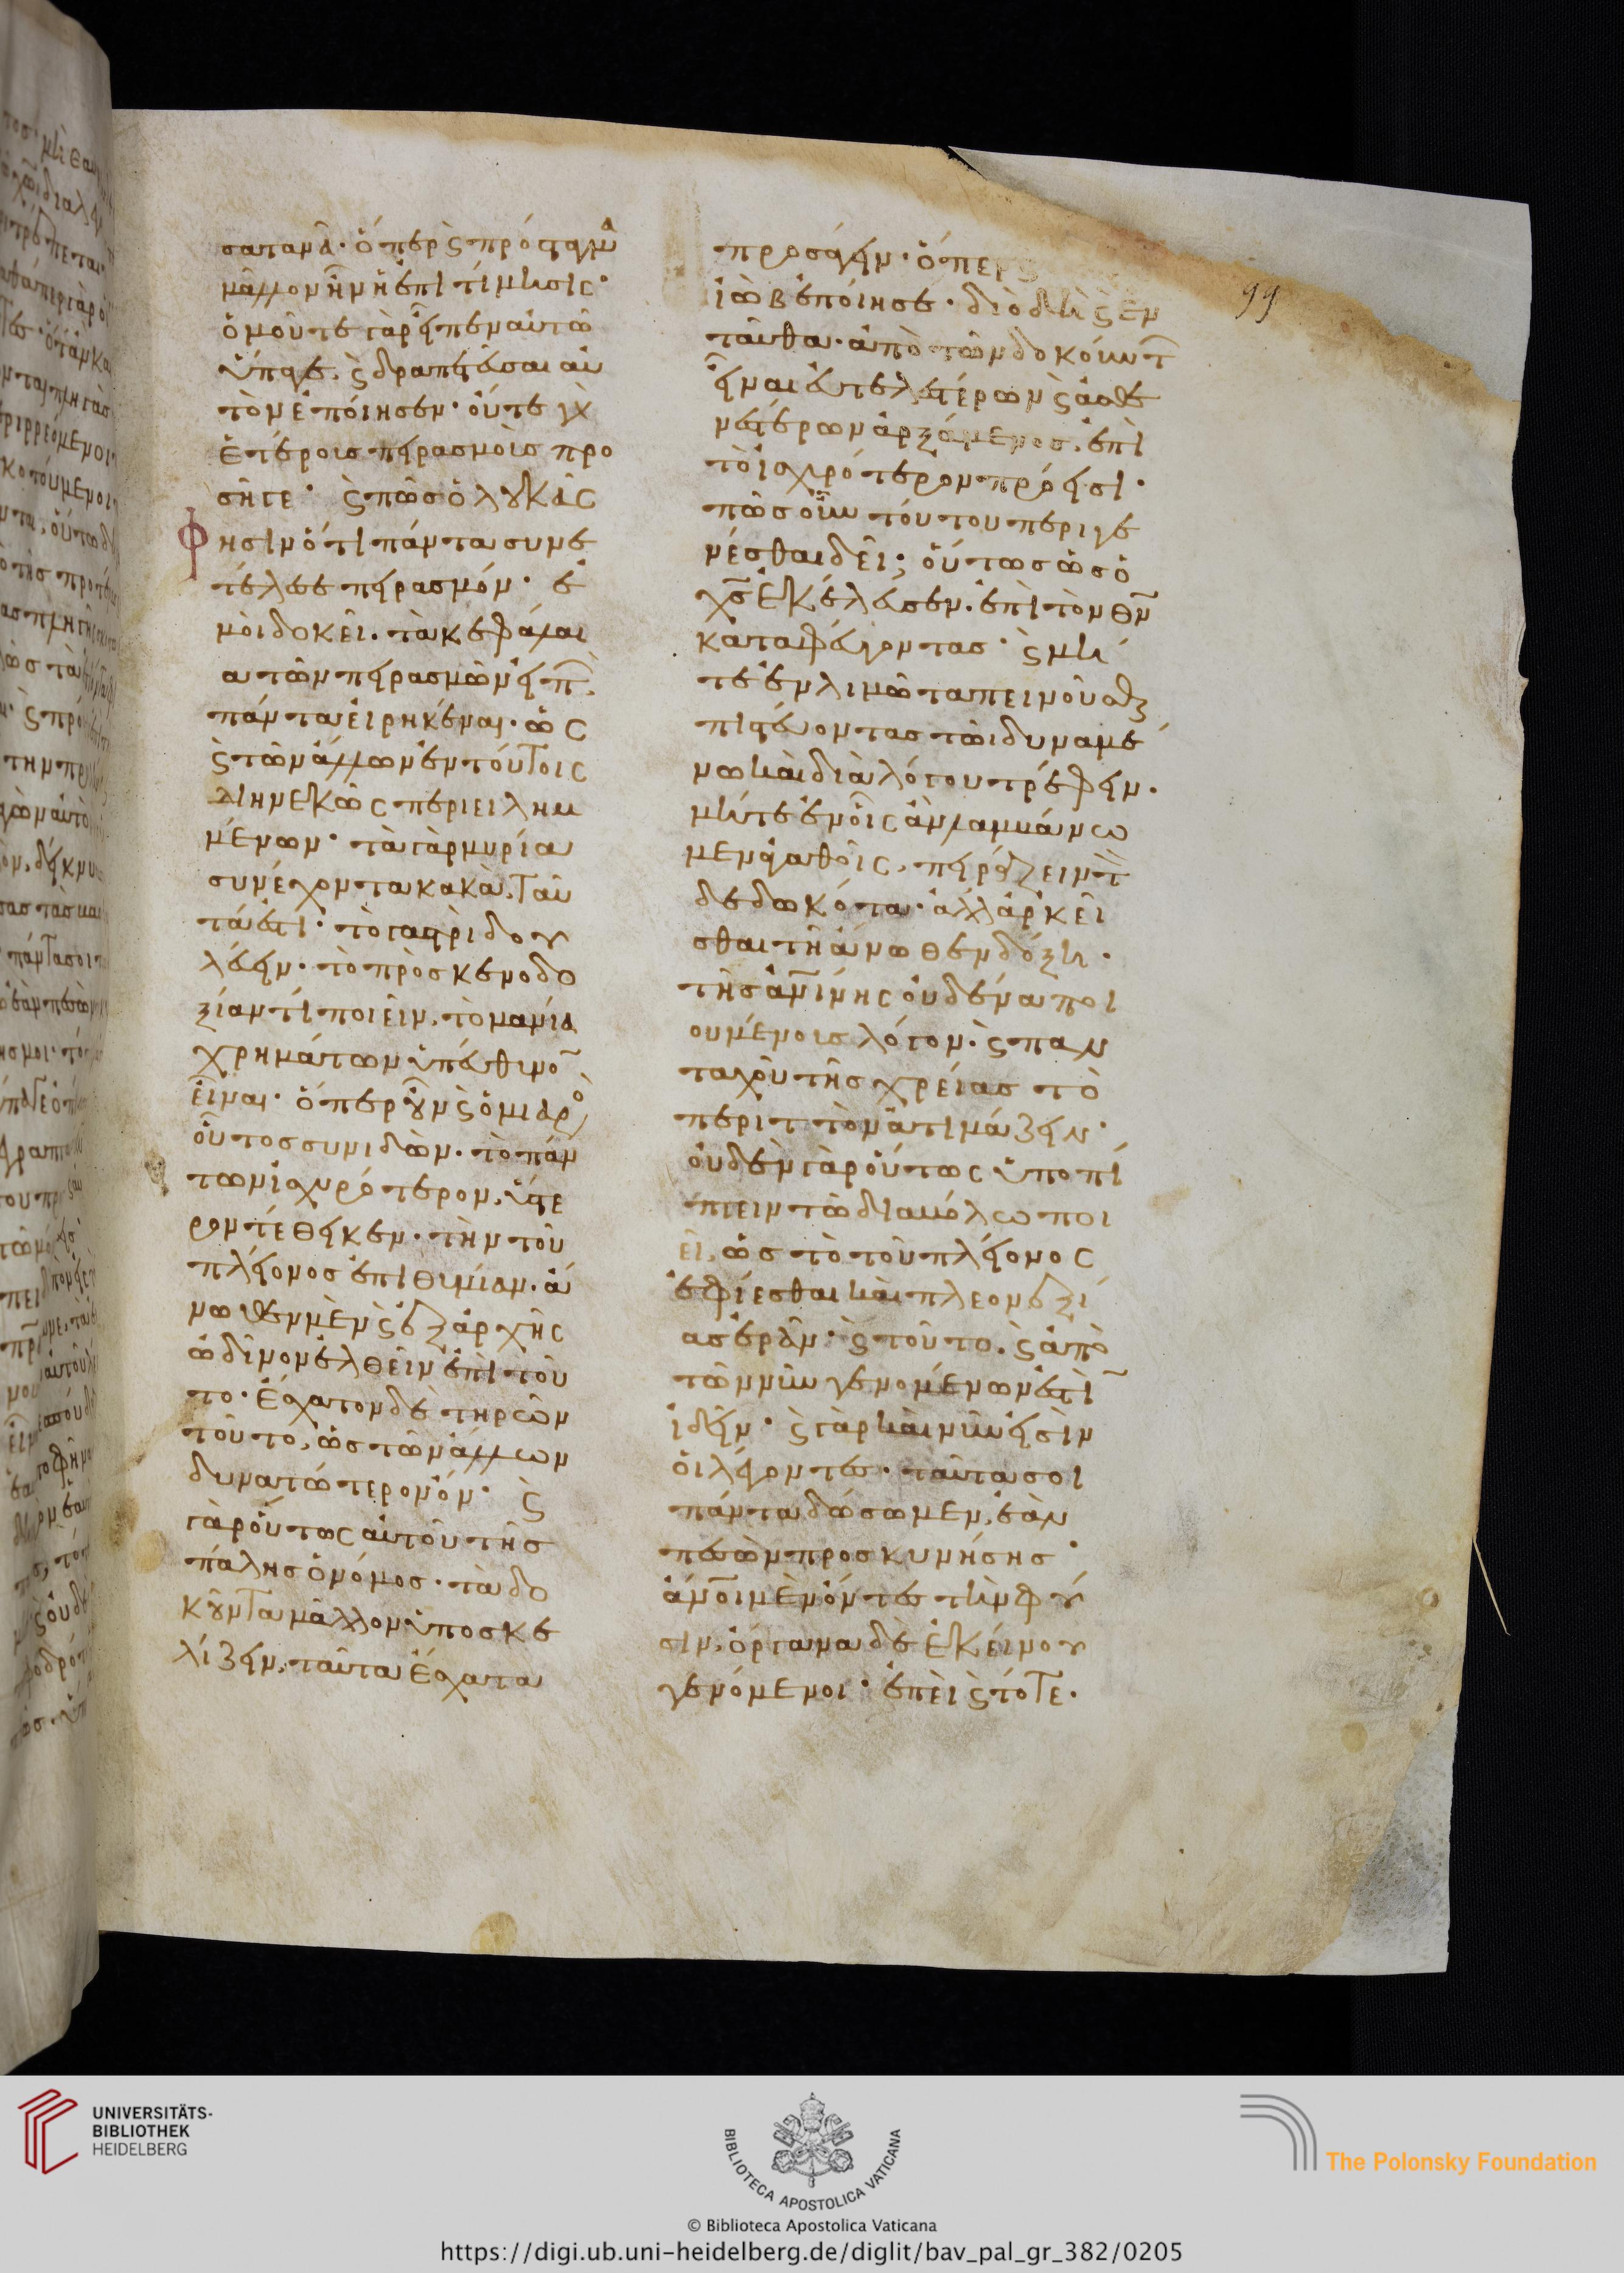 σατανᾶ· ὅπερ ϛ̀ πρόσταγμα
μᾶλλον ἦν ἢ ἐπιτίμησις·
ὁμοῦ τε γὰρ εἶπεν αὐτῶ
ὕπαγε, ϛ̀ δραπετεῦσαι αὐ
τὸν ἐποίησεν· οὔτε γὰρ
ἑτέροις πειρασμοῖς προ
σῆγε· ϛ̀ πῶς ὁ λουκᾶς
φησὶν ὅτι πάντα συνε
τέλεσε πειρασμόν· ἐ
μοὶ δοκεῖ. τὰ κεφάλαι
α τῶν πειρασμῶν εἰπ̄ὼ
πάντα εἰρηκέναι· ὡς
ϛ̀ τῶν ἄλλων ἐν τούτοις
διηνεκῶς περιειλημ
μένων· τὰ γὰρ μυρία
συνέχοντα κακὰ, ταῦ
τά ἐστι· τὸ γαστρὶ δου
λεύειν· τὸ πρὸς κενοδο
ξίαν τὶ ποιεῖν, τὸ μανία
χρημάτων ὑπεύθυνο̄
εἶναι· ὅπερ οὖν ϛ̀ ὁ μιαρὸ
οὗτος συνιδὼν· τὸ πάν
των ἰσχυρότερον, ὕστε
ρον τέθεικεν· τὴν τοῦ
πλείονος ἐπιθυμίαν· ἄ
νωθεν μὲν ϛ̀ ἐξ ἀρχῆς
ὤδινον ἐλθεῖν ἐπὶ τοῦ
το· ἔσχατον δὲ τηρῶν
τοῦτο, ὡς τῶν ἄλλων
δυνατώτερον ὄν· ϛ̀
γὰρ οὕτως αὐτοῦ τῆς
πάλης ὁ νόμος· τὰ δο
κοῦντα μᾶλλον ὑποσκε
λίζειν, ταῦτα ἔσχατα
προσάγειν· ὅπερ ϛ̀
ἰὼβ ἐποίησε· διὸ δὴ ϛ̀ ἐν
ταῦθα· ἀπὸ τῶν δοκούντ̄
εἶναι εὐτελεστέρων ϛ̀ ἀσθε
νεστέρων ἀρξάμενος, ἐπὶ
τὸ ἰσχυρότερον πρόεισι·
πῶς οὖν τούτου περιγε
νέσθαι δεῖ; οὕτως ὡς ὁ
χ̄ς ἐκέλευσεν· ἐπὶ τὸν θ̄ν
καταφεύγοντας· ϛ̀ μή
τε ἐν λιμῶ ταπεινοῦσθαι
πιστεύοντας τῶι δυναμέ
νω καὶ διὰ λόγου τρέφειν·
μήτε ἐν οἷς ἂν λαμβάνω
μεν ἀγαθοῖς, πειράζειν τ̄
δεδωκότα· ἀλλ' ἀρκεῖ
σθαι τῆ ἄνωθεν δόξη·
τῆς ἀν̄ίνης οὐδένα ποι
ουμένοις λόγον· ϛ̀ παν
ταχοῦ τῆς χρείας τὸ
περιττὸν ἀτιμάζειν·
οὐδὲν γὰρ οὕτως ὑποπί
πτειν τῶ διαβόλω ποι
εῖ, ὡς τὸ τοῦ πλείονος
ἐφίεσθαι καὶ πλεονεξί
ας ἐρᾶν· ϛ̀ τοῦτο. ϛ̀ ἀπὸ
τῶν νῦν γενομένων ἐστὶ̄
ἰδεῖν· ϛ̀ γὰρ καὶ νῦν εἰσὶν
οἱ λέγοντες· ταῦτα σοι
πάντα δώσωμεν, ἐὰν
πεσὼν προσκυνήσης·
ἄν̄οι μὲν ὄντες τὴν φύ
σιν, ὄργανα δὲ ἐκείνου
γενόμενοι· ἐπεὶ ϛ̀ τότε·
99
UNIVERSITÄTS-
BIBLIOTHEK
HEIDELBERG
BIBLIOTECA APOSTOLICA VATICANA
© Biblioteca Apostolica Vaticana
The Polonsky Foundation
https://digi.ub.uni-heidelberg.de/diglit/bav_pal_gr_382/0205